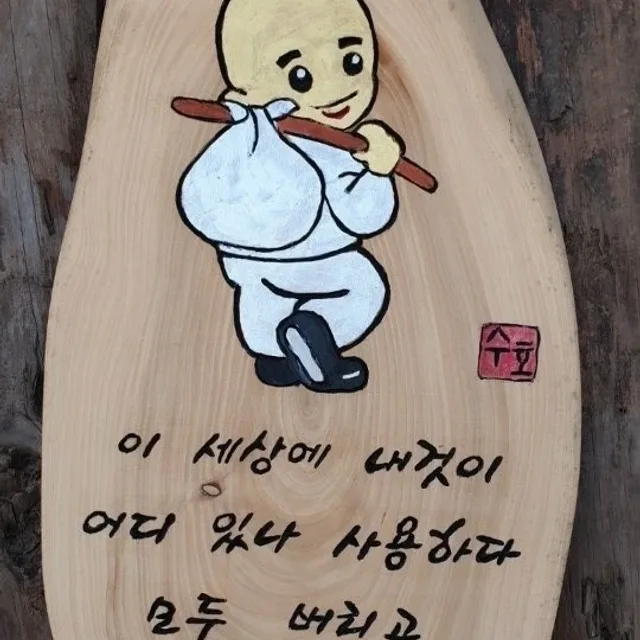 수호
이 세상에 내것이
어디 있나 사용하다
모두 버리고